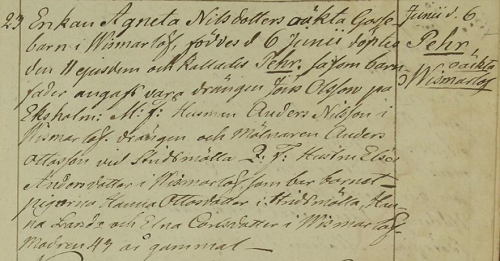 23 Enkan Agneta Nilsdotters oäkta Gosse
barn i Wismarlöf, föddes d 6 Junii döptes
den 11 ejusdem och kallades Pehr, såsom barn
fader angafs vara drängen Jöns Olsson på
Eksholm: M: f: Husman Anders Nilsson i
Wismarlöf. drängen och Mölnaren Anders
Ottosson ved Stridsmölla Q. f: Hustru Elsa
Andersdotter i Wismarlöf som bar barnet
pigorna Hanna Ottosdotter i Stridsmölla, Han-
na och Elna Carlsdotter i Wismarlöf
Modren 43 år gammal
Junii d. 6.
Pehr
oäkta
Wismarlöf